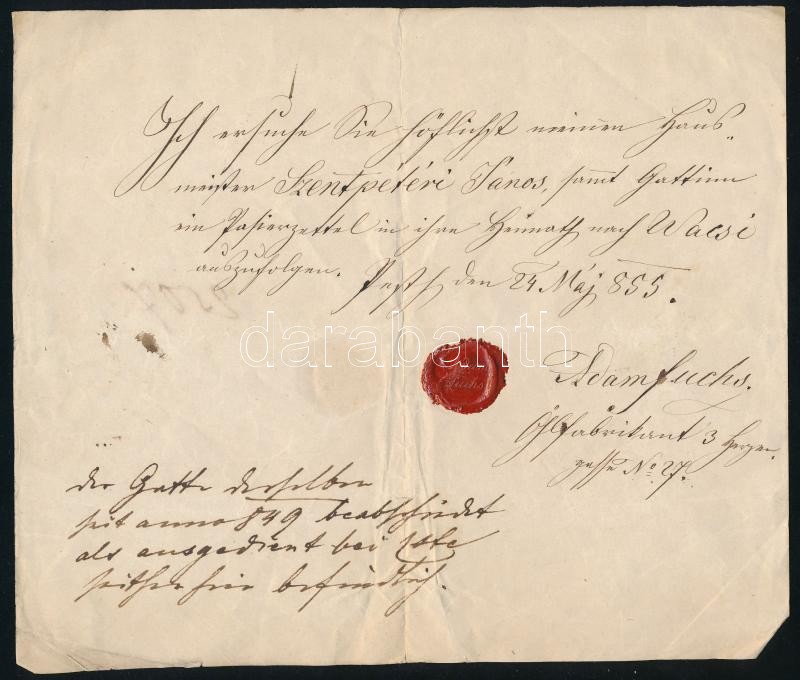 Ich ersuche Sie höflichst meinen Haus„
meister Szentpéteri János, sammt Gattinn
ein Pasierzettel in ihre Heimath nach Wacsi
auszufolgen. Pesth den 24 Máj 855.
darabanth
Fuchs
Adam Fuchs.
Öhlfabrikant 3 Herzen„
gasse No 27.
der Gatte derselben
seit anno 849 beabschiedet
als ausgedient bei
seither hier befindlich.